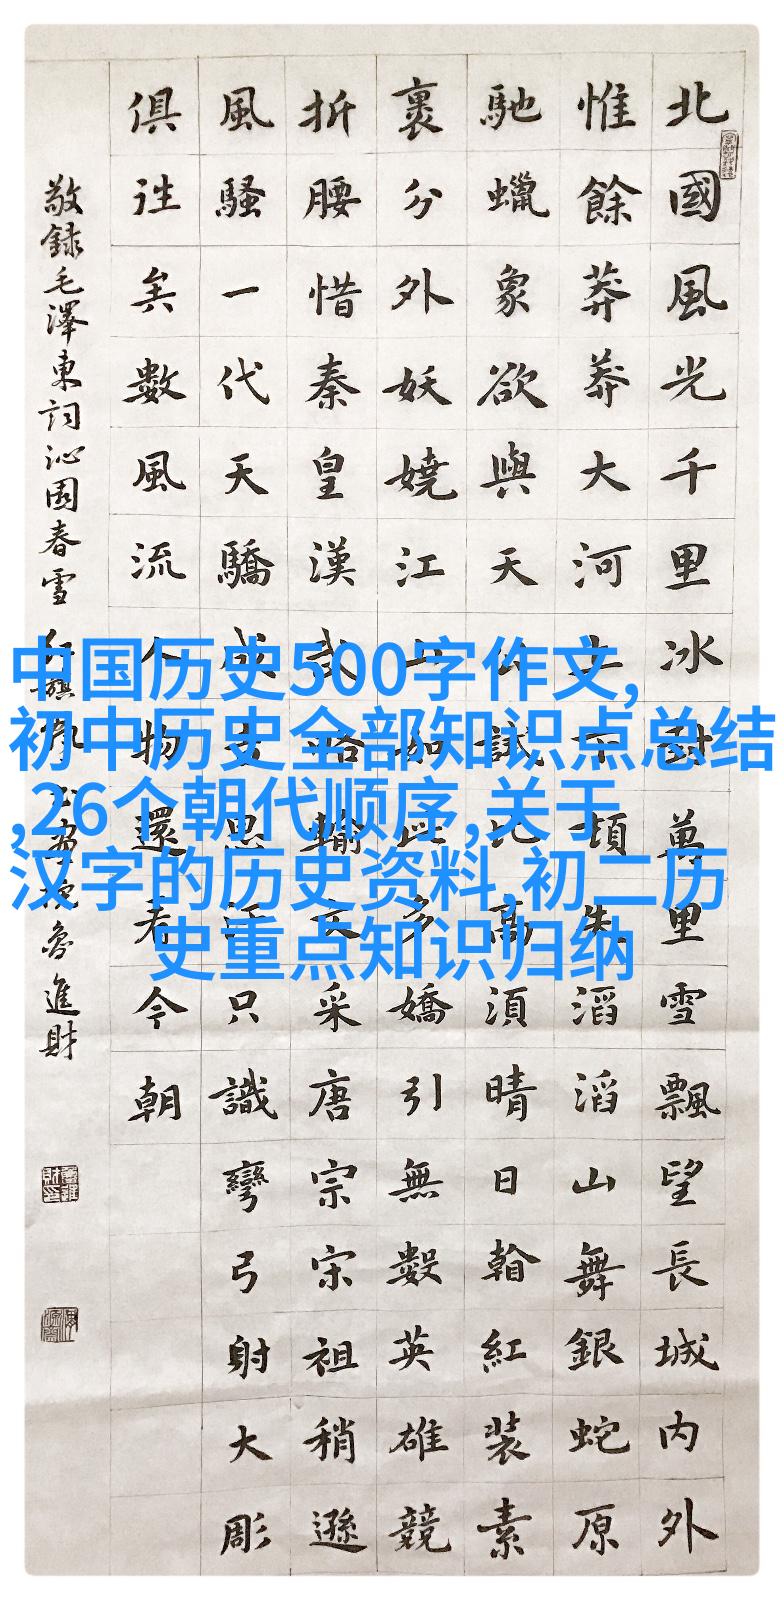 中国历史500字作文,
初中历史全部知识点总结
,26个朝代顺序,关于
汉字的历史资料,初二历
史重点知识归纳
北國風光千里冰封萬里雪飄望長城内外
惟餘莽莽大河上下頓失滔滔山舞銀蛇原
馳蠟象欲與天公試比高須晴日翰紅裝素
裹分外妖嬈江山如此多嬌引無數英雄競
折腰惜秦皇漢武略輸文采唐宗宋祖稍遜
風騷一代天驕成吉思汗只識彎弓射大彫
俱往矣數風流人物還看今朝
敬録毛澤東詞沁園春雪 魯進財